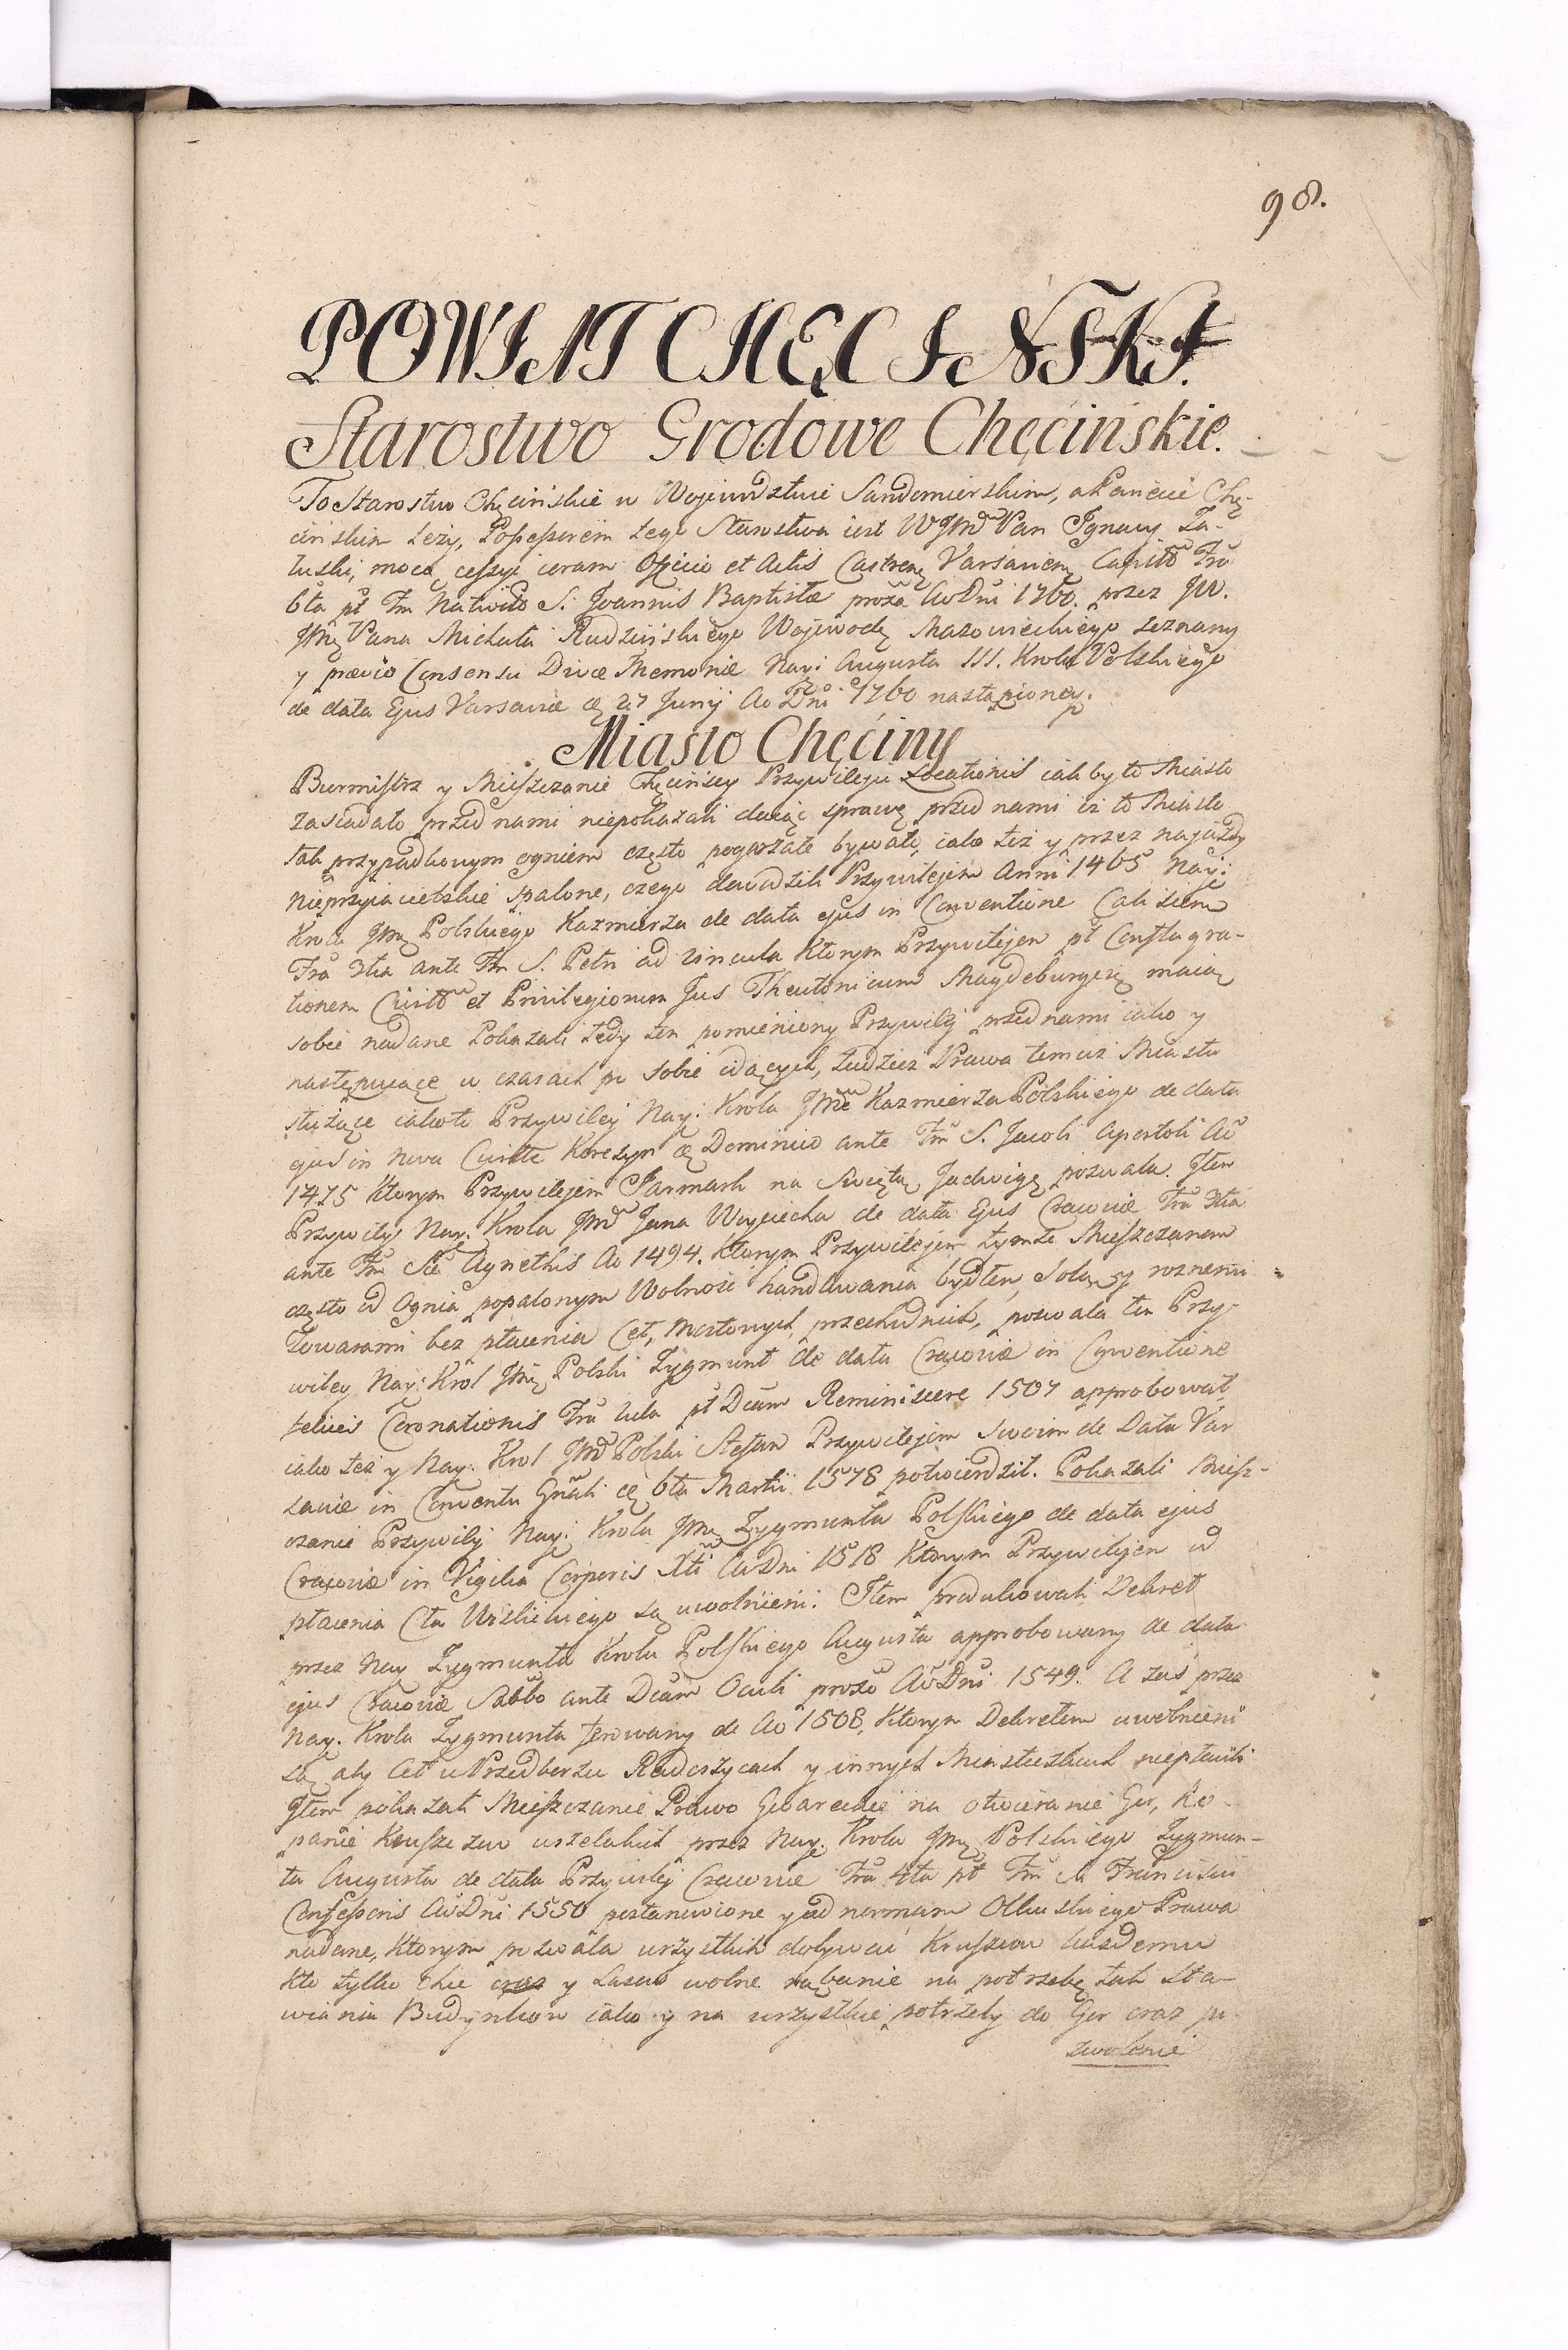 98.
POWIAT CHĘCINSKI.
Starostwo Grodowe Chęćińskie.
To Starostwo Chęcińskie w Wojewodztwie Sandomierskim, a Powiecie Chę-
cińskim leży, Possessorem tego Starostwa iest WJMć Pan Jgnacy Za-
łuski, mocą cessyi coram Officio et Actis Castren: Varsavien: Capitt Fria
6ta pt Fm Nativitt S. Joannis Baptistæ proxa AoDni 1760. przez JW.
JMę Pana Michała Rudzińskiego Wojewodę Mazowieckiego zeznany
y prævio Consensu Divæ Memoriæ Nay: Augusta III. Krola Polskiego
de data Ejus Varsaviæ 27 Junij Ao Dni 1760 nastąpioney.
Miasto Chęćiny
Burmistrz y Mieszczanie Chęcińscy Przywileju Locationis iak by to Miasto
zasiadało przed nami niepokazali daiąc sprawę przed nami iż to Miasto
tak przypadkowym ogniem często pogorzałe bywało, iako też y przez najazdy
nieprzyiacielskie spalone, czego dowodzili Przywilejem Anni 1465 Nay:
Krola JMę Polskiego Kazmierza de data ejus in Conventione Calisien
Fria 3tia ante Fm S. Petri ad Vincula Ktorym Przywilejem pt Conflagra-
tionem Civitt et Privilegiorum Jus Theutonicum Magdeburgen maią
sobie nadane Pokazali tedy ten pomieniony Przywilej przed nami iako y
następuiące w czasach po sobie idących, tudziesz Prawa temuz Miastu
służące iako to Przywiley Nay: Krola JMći Kazmierza Polskiego de data
ejus in Nova Civitte Korczyn Dominico ante Fm S. Jacobi Apostoli Ao
1475 Ktorym Przywilejem Jarmark na Swiętą Jadwigę pozwala. Jtem
Przywilej Nay: Krola JMć Jana Woyciecha de data Ejus Cracoviæ Fria 3tia
ante Fm Stæ Agnethis Ao 1494. Ktorym Przywilejem tymze Mieszczanom
często od Ognia popalonym Wolność handlowania bydłem, Solą y roznemi
Towarami bez płacenia Ceł, Mostowych, przechodnich, pozwala ten Przy-
wiley Nay: Krol JMę Polski Zygmunt de data Cracoviæ in Conventione
felicis Coronationis Fria 2da pt Dcam Reminiscere 1507 approbował
iako też y Nay: Krol JMć Polski Stefan Przywilejem Swoim de Data Var
saviæ in Conventu Gnali 6ta Martii 1578 potwierdził. Pokazali Miesz-
czanie Przywilej Nay: Krola JMę Zygmunta Polskiego de data ejus
Cracoviæ in Vigilia Corporis Xti AoDni 1518 Ktorym Przywilejem od
płacenia Cła Wislickiego są uwolnieni. Jtem produkowali Dekret
przez Nay Zygmunta Krola Polskiego Augusta approbowany de data
ejus Cracoviæ Sabbo ante Dcam Oculi proxo AoDni 1549. A zas przez
Nay. Krola Zygmunta ferowany de Ao 1508, Ktorym Dekretem uwolnieni
są aby Ceł w Przedborzu Radoszycach y innych Miasteczkach niepłacili
Jtem pokazali Mieszczanie Prawo Gwareckie na otwieranie Gor, Ko-
panie Kruszczow wszelakich przez Nay: Krola JMę Polskiego Zygmun-
ta Augusta de data Przywilej Cracoviæ Fria 4ta pt Fm S. Francisci
Confessoris AoDni 1550 postanowione y ad normam Olkuskiego Prawa
nadane, Ktorym pozwala wszystkich dobywać Kruszcow każdemu
Kto tylko chce oraz y Lasow wolne rąbanie na potrzebę tak sta-
wiania Budynkow iako y na wszystkie potrzeby do Gor oraz po
zwolenie